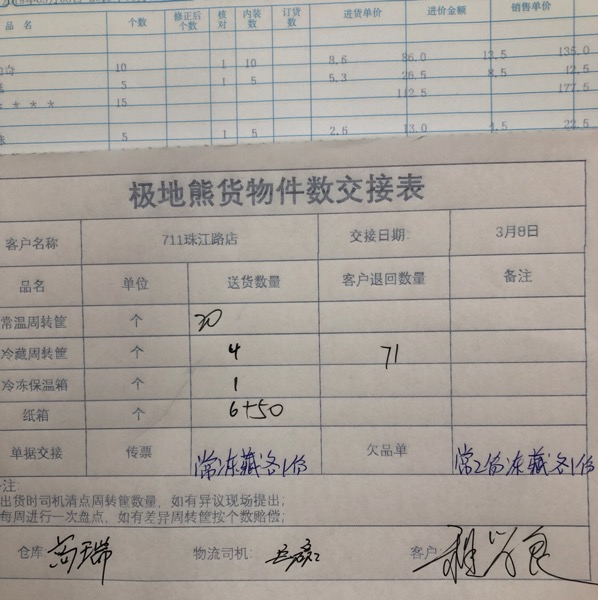 品 名 个数 修正后个数 核对 内装数 订货数 进货单价 进价金额 销售单价
10 1 10 8.6 86.0 13.5 135.0
5 1 5 5.3 26.5 8.5
* * * * 15 112.5 177.5
5 1 5 2.6 13.0 4.5 22.5
极地熊货物件数交接表
客户名称 711珠江路店 交接日期: 3月8日
品名 单位 送货数量 客户退回数量 备注
常温周转筐 个 30
冷藏周转筐 个 4 71
冷冻保温箱 个 1
纸箱 个 6+50
单据交接 传票 常冻藏各1份 欠品单 常2份冻藏各1份
注:
出货时司机清点周转筐数量，如有异议现场提出;
每周进行一次盘点，如有差异周转筐按个数赔偿;
仓库: 物流司机: 客户: